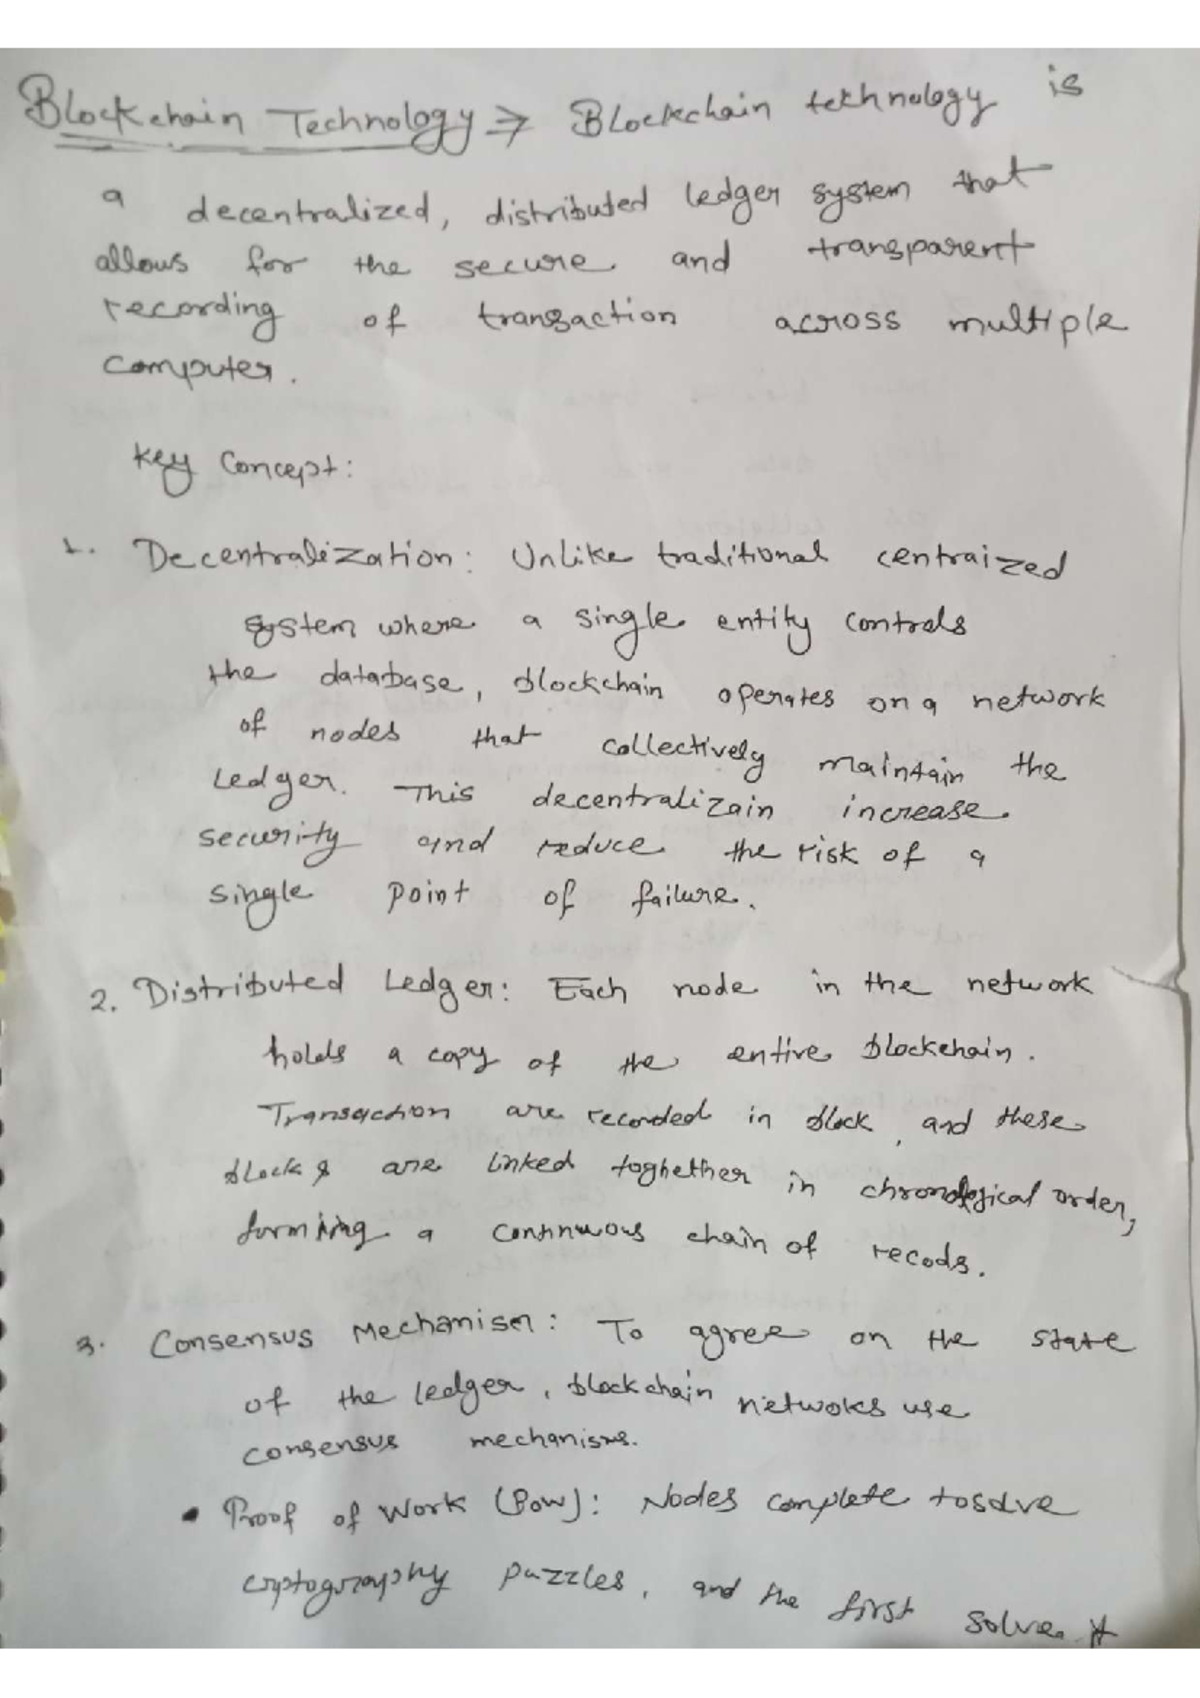 Blockchain Technology ⇒ Blockchain technology is
a decentralized, distributed ledger system that
allows for the secure and transparent
recording of transaction across multiple
computer.
Key Concept:
1. Decentralization: Unlike traditional centraized
system where a single entity controls
the database, blockchain operates on a network
of nodes that collectively maintain the
Ledger. This decentralizain increase
security and reduce the risk of a
single point of failure.
2. Distributed Ledger: Each node in the network
holds a copy of the entire blockchain.
Transaction are recorded in block, and these
blocks are linked toghether in chronological order,
forming a continuous chain of recods.
3. Consensus Mechanism: To agree on the state
of the ledger, blockchain netwoks use
consensus mechanisms.
• Proof of Work (Pow): Nodes complete tosolve
cryptography puzzles, and the first solve it